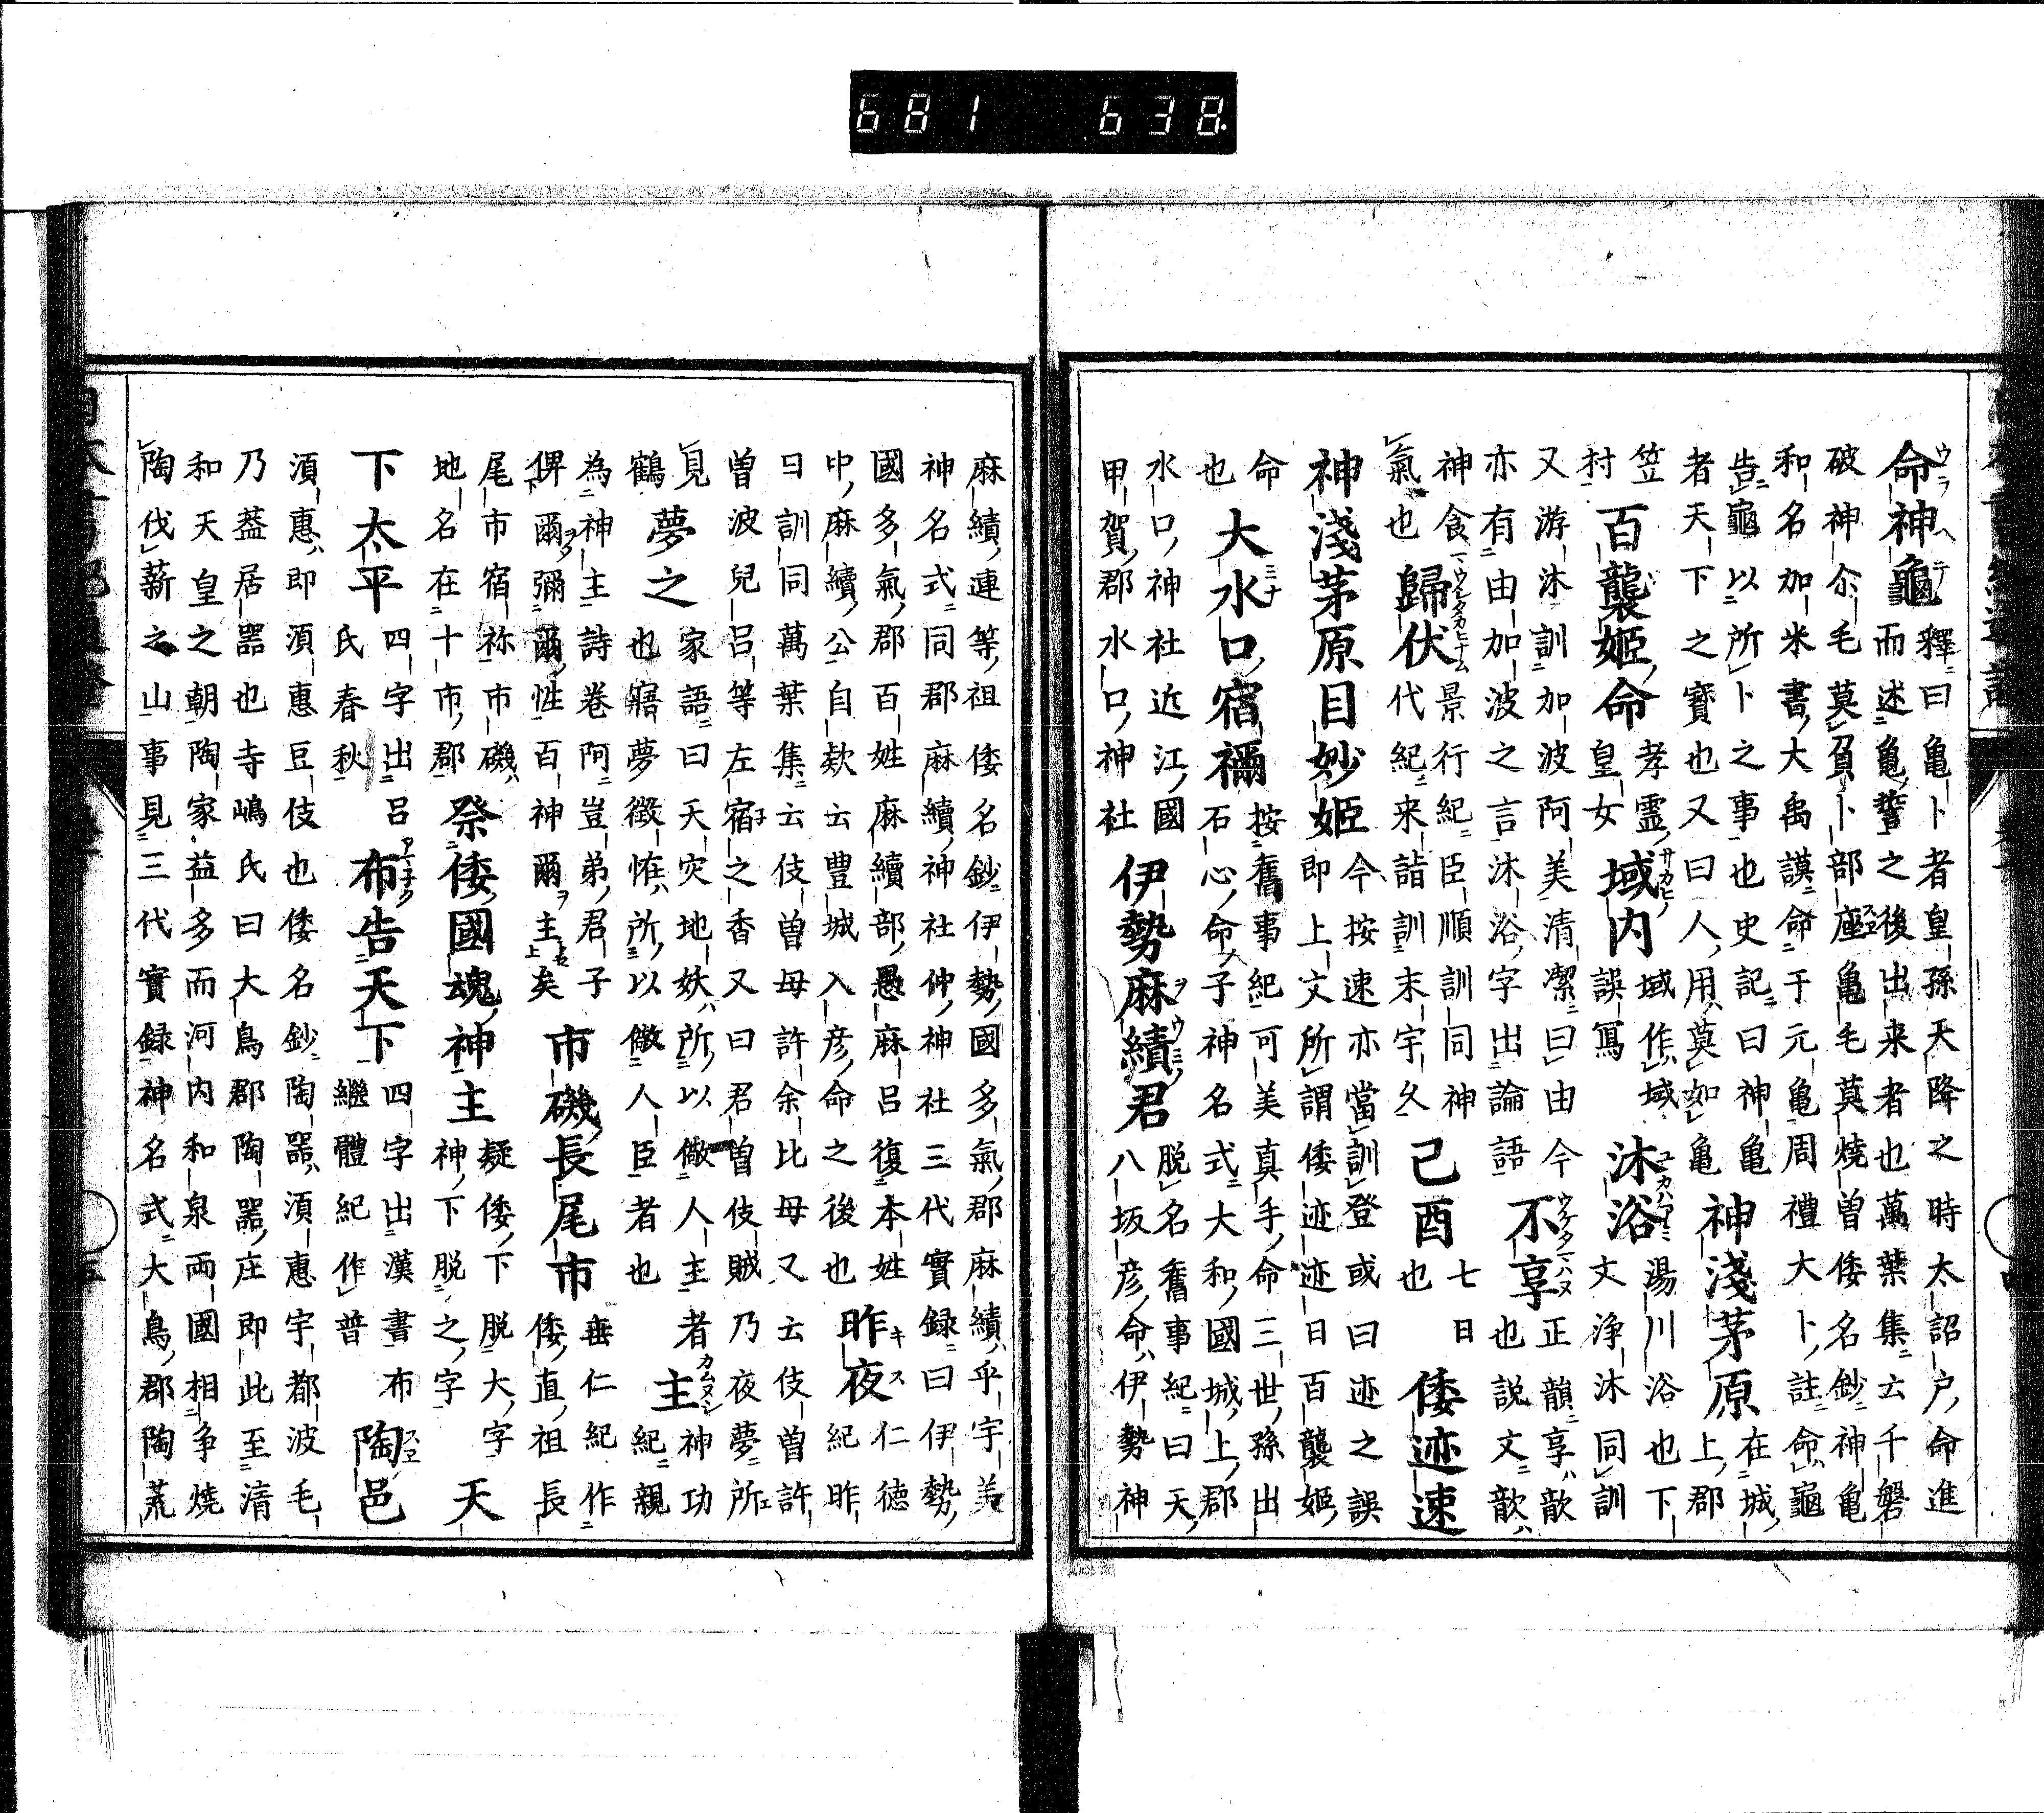 命神龜釋曰亀卜者皇孫天降之時太詔戸命進
而述亀誓之後出来者也萬葉集云千磐
破神尒毛莫負卜部座亀毛莫焼曽倭名鈔神亀
和名加米書大禹謨命于元亀周禮大卜註命龜
告龜以所卜之事也史記曰神亀
者天下之寶也又曰人用莫如亀
神淺茅原在城
上郡
笠
村
百襲姫命孝霊
皇女
域内域作域
誤寫
沐浴湯川浴也下
文浄沐同訓
又游沐訓加波阿美清潔曰由今
亦有由加波之言沐浴字出論語
不享正韻享歆
也説文歆
神食
氣也
歸伏景行紀臣順訓同神
代紀来詣訓末宇久
己酉七日
也
倭迹速
神淺茅原目妙姫今按速亦當訓登或曰迹之誤
即上文所謂倭迹迹日百襲姫
命
也
大水口宿禰按舊事紀可美真手命三世孫出
石心命子神名式大和國城上郡
水口神社近江國
甲賀郡水口神社
伊勢麻績君脱名舊事紀曰天
八坂彦命伊勢神
麻績連等祖倭名鈔伊勢國多氣郡麻績乎宇美
神名式同郡麻續神社仲神社三代實録曰伊勢
國多氣郡百姓麻續部愚麻呂復本姓
中麻續公自欵云豊城入彦命之後也
昨夜仁徳
紀昨
曰訓同萬葉集云伎曽母許余比母又云伎曽許
曽波兒呂等左宿之香又曰君曽伎賊乃夜夢所
見
鶴
夢之家語曰天灾地妖所以儆人主者
也寤夢徴恠所以儆人臣者也
主神功
紀親
為神主詩巻阿豈弟君子
俾爾彌爾性百神爾主矣
市磯長尾市垂仁紀作
倭直祖長
尾市宿祢市磯
地名在十市郡
祭倭國魂神主疑倭下脱大字
神下脱之字
天
下太平四字出呂
氏春秋
布告天下四字出漢書布
繼體紀作普
陶邑
湏惠即湏惠豆伎也倭名鈔陶器湏惠宇都波毛
乃葢居器也寺嶋氏曰大鳥郡陶器庄即此至清
和天皇之朝陶家益多而河内和泉兩國相争焼
陶伐薪之山事見三代實録神名式大鳥郡陶荒
681 638